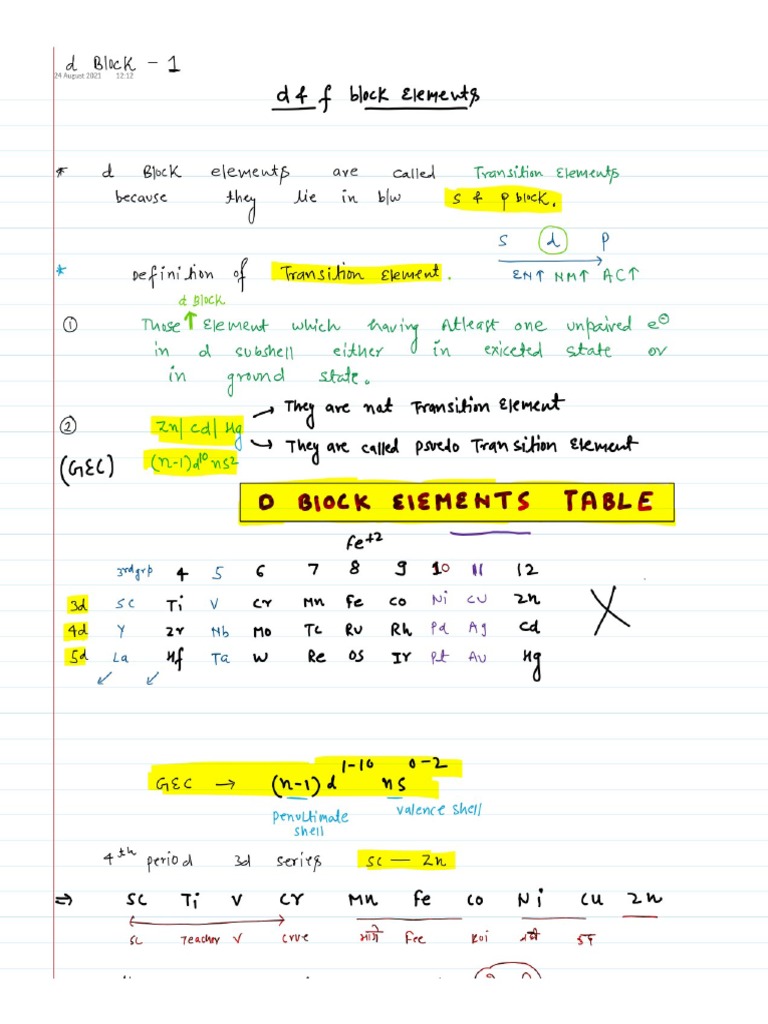 d Block - 1
24 August 2021 12:12
d & f block Elements
* d Block elements are called Transition Elements
because they lie in b/w s & p block.
s d p
EN↑ NM↑ AC↑
* Definition of Transition Element.
d Block
① Those ↑ Element which having Atleast one unpaired e⊖
in d subshell either in exiceted state or
in ground state.
② Zn| Cd| Hg → They are not Transition Element
→ They are called psuedo Transition Element
(GEC) (n-1)d¹⁰ns²
D BlOCK ElEMENTS TABLE
Fe⁺²
3rd grp 4 5 6 7 8 9 10 11 12
3d Sc Ti V Cr Mn Fe Co Ni Cu Zn
4d Y Zr Nb Mo Tc Ru Rh Pd Ag Cd
5d La Hf Ta W Re Os Ir Pt Au Hg
GEC → (n-1)d¹⁻¹⁰ ns⁰⁻²
penultimate shell valence shell
4th period 3d series Sc — Zn
⇒ Sc Ti V Cr Mn Fe Co Ni Cu Zn
Sc Teacher V Crue मांगे Fee Koi नही